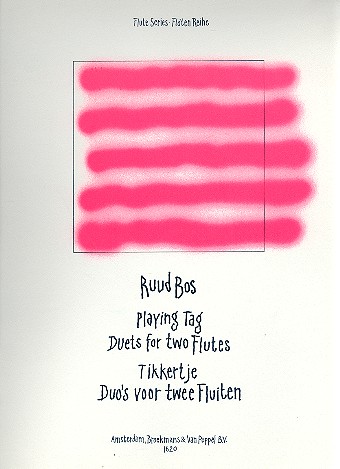 Flute Series · Flöten Reihe
Ruud Bos
Playing Tag
Duets for two Flutes
Tikkertje
Duo's voor twee Fluiten
Amsterdam, Broekmans & Van Poppel B.V.
1620